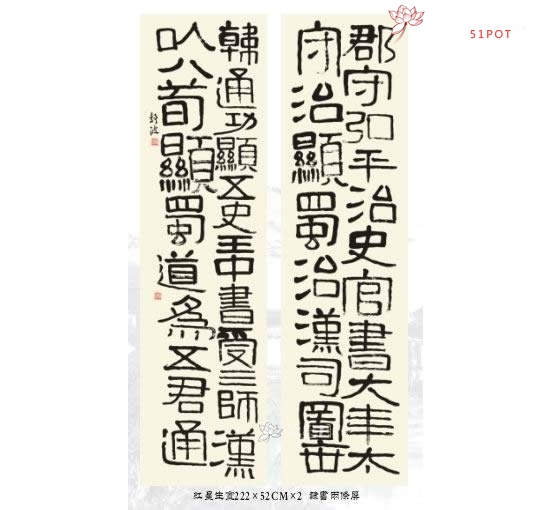 51POT
郡守弘平治史官書太年太
守治顯蜀治漢司圖世
韓通功顯五史王中書受三師漢
以八旬顯蜀道為五君通
红星生宣222×52CM×2 隸書兩條屏